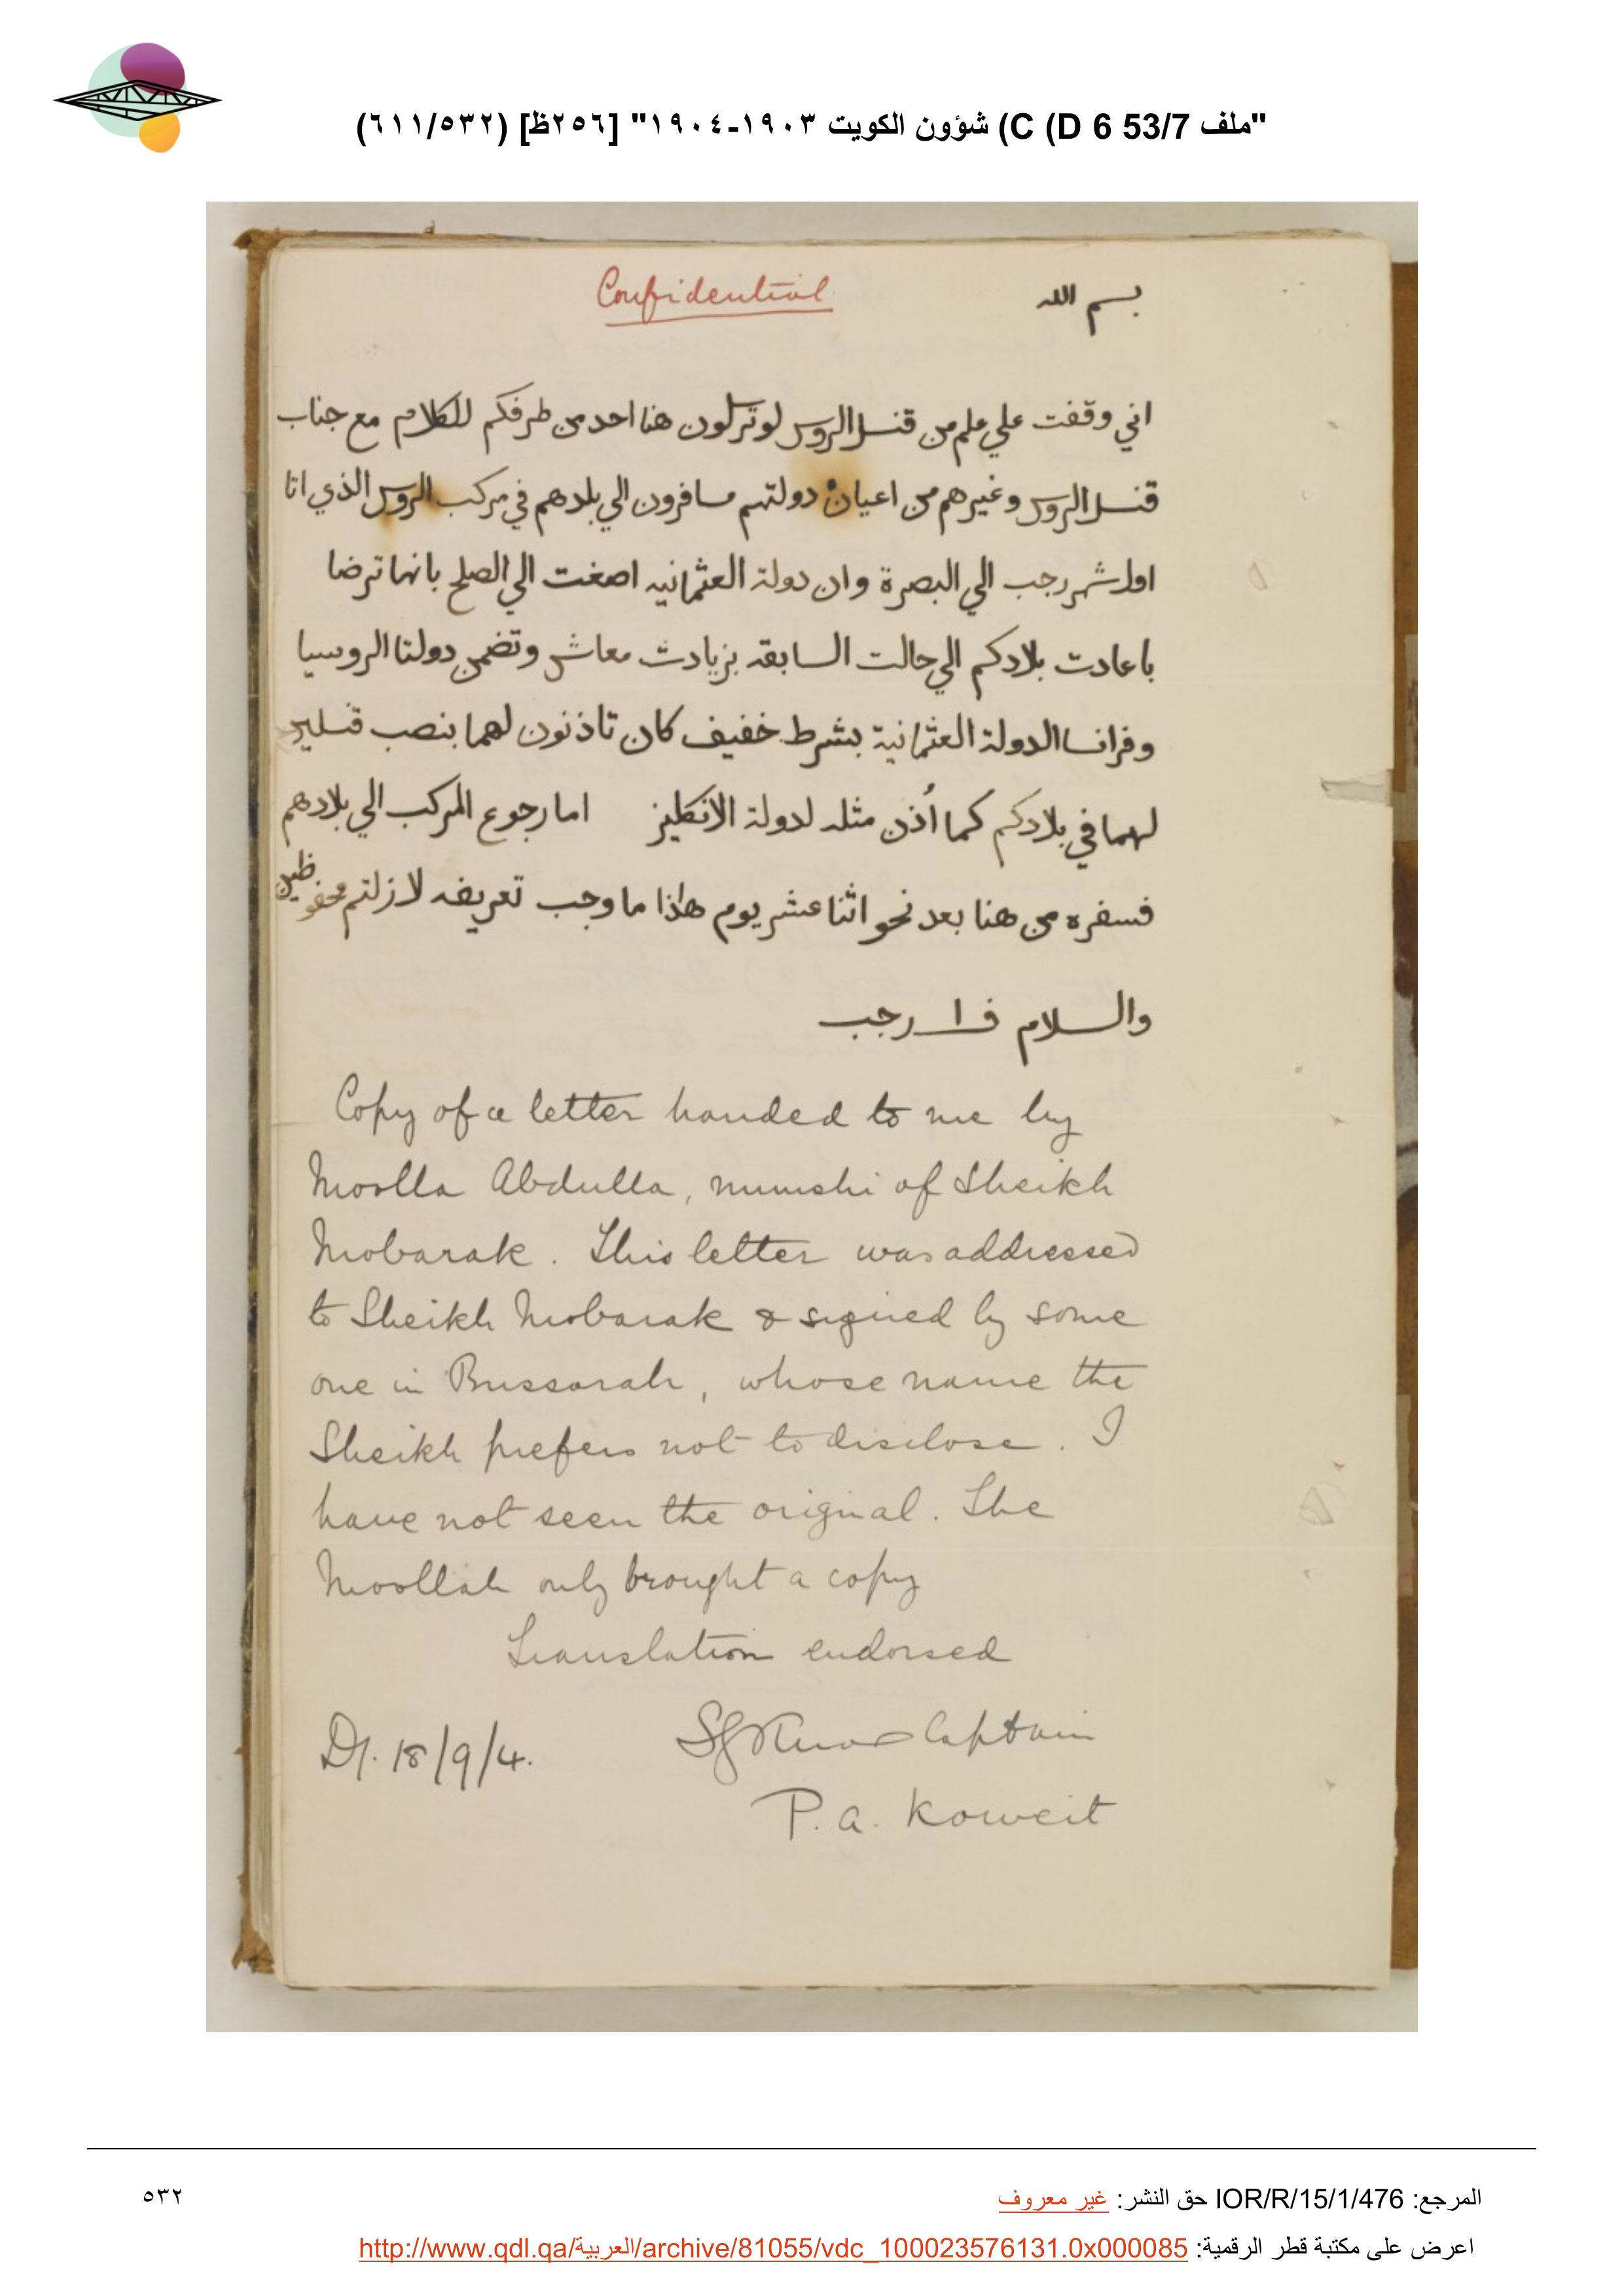 "ملف 53/7 C (D 6) شؤون الكويت ١٩٠٣-١٩٠٤" [٢٥٦ظ] (٦١١/٥٣٢)
Confidential
بسم الله
اني وقفت علي علم من قنسل الروس لو ترسلون هنا احد من طرفكم للكلام مع جناب
قنسل الروس وغيرهم من اعيان دولتهم مسافرون الي بلدهم في مركب الروس الذي اتا
اول شهر رجب الي البصرة وان دولة العثمانيه اصغت الي الصلح بانها ترضا
باعادت بلادكم الي حالت السابقه بزيادت معاش وتضمن دولتا الروسيا
وفرانسا الدولة العثمانية بشرط خفيف كان تاذنون لهما بنصب قنسلين
لهما في بلادكم كما أذن مثله لدولة الانكليز اما رجوع المركب الي بلادهم
فسفره من هنا بعد نحو اثنا عشر يوم هاذا ما وجب تعريفه لا زلتم محفوظين
والسلام في ١ رجب
Copy of a letter handed to me by
Moolla Abdulla, munshi of Sheikh
Mobarak. This letter was addressed
to Sheikh Mobarak & signed by some
one in Bussorah, whose name the
Sheikh prefers not to disclose. I
have not seen the original. The
Moollah only brought a copy
Translation endorsed
SG Knox Captain
D/. 18/9/4.
P. A. Koweit
المرجع: IOR/R/15/1/476 حق النشر: غير معروف
٥٣٢
اعرض على مكتبة قطر الرقمية: http://www.qdl.qa/العربية/archive/81055/vdc_100023576131.0x000085